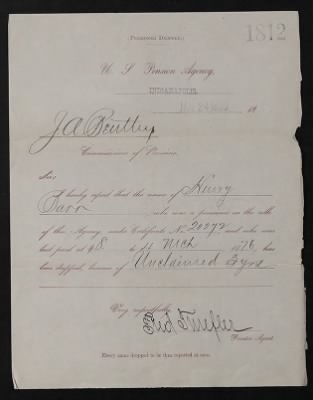 Pensioner Dropped.
1812
U. S. Pension Agency,
INDIANAPOLIS,
18
J A Bentley
Commissioner of Pensions.
Sir:
I hereby report that the name of Henry
who was a pensioner on the rolls
of this Agency, under Certificate No. 20272 and who was
last paid at $8 to 4 Mch 1876, has
been dropped, because of Unclaimed 3 yrs
Very respectfully,
Pension Agent.
Every name dropped to be thus reported at once.